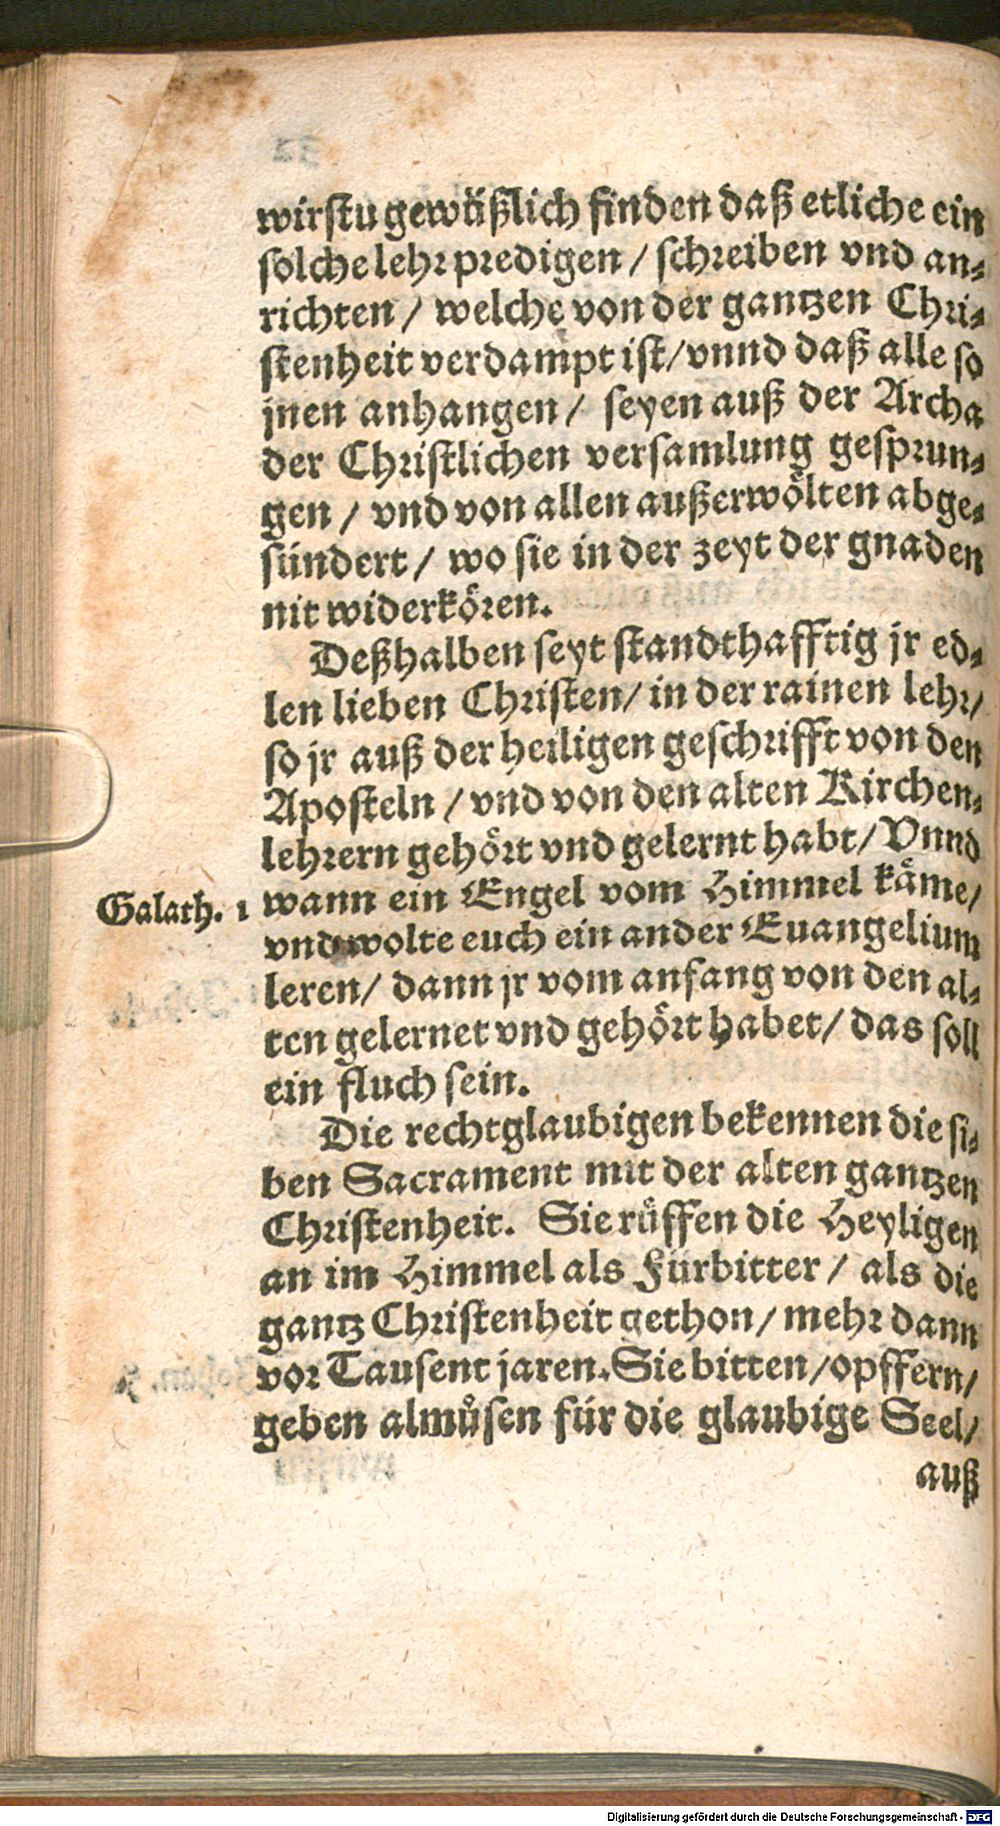 wirstu gewüßlich finden daß etliche ein
solche lehr predigen / schreiben vnd an⸗
richten / welche von der gantzen Chri⸗
stenheit verdampt ist/ vnnd daß alle so
jnen anhangen / seyen auß der Archa
der Christlichen versamlung gesprun⸗
gen / vnd von allen außerwölten abge⸗
sündert / wo sie in der zeyt der gnaden
nit widerkören.
Deßhalben seyt standthafftig jr ed⸗
len lieben Christen/ in der rainen lehr/
so jr auß der heiligen geschrifft von den
Aposteln / vnd von den alten Kirchen⸗
lehrern gehört vnd gelernt habt/ Vnnd
Galath. 1 wann ein Engel vom Himmel käme/
vnd wolte euch ein ander Euangelium
leren/ dann jr vom anfang von den al⸗
ten gelernet vnd gehört habet/ das soll
ein fluch sein.
Die rechtglaubigen bekennen die si⸗
ben Sacrament mit der alten gantzen
Christenheit. Sie rüffen die Heyligen
an im Himmel als Fürbitter / als die
gantz Christenheit gethon/ mehr dann
vor Tausent jaren. Sie bitten/ opffern/
geben almůsen für die glaubige Seel/
auß
Digitalisierung gefördert durch die Deutsche Forschungsgemeinschaft - DFG